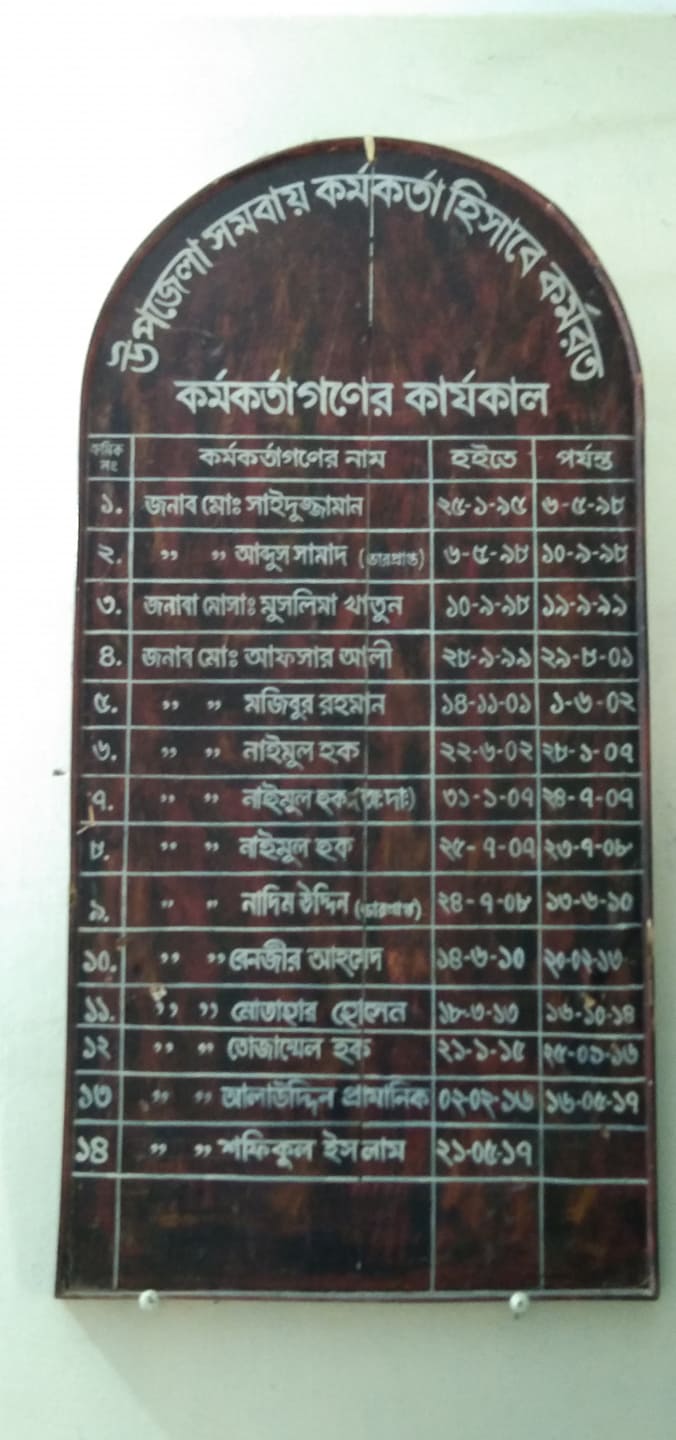 উপজেলা সমবায় কর্মকর্তা হিসাবে কর্মরত
কর্মকর্তাগণের কার্যকাল
ক্রমিক নং কর্মকর্তাগণের নাম হইতে পর্যন্ত
১. জনাব মোঃ সাইদুজ্জামান ২৫-১-৯৫ ৬-৫-৯৮
২. ,, ,, আব্দুস সামাদ (ভারপ্রাপ্ত) ৬-৫-৯৮ ১০-৯-৯৮
৩. জনাবা মোসাঃ মুসলিমা খাতুন ১০-৯-৯৮ ১৯-৯-৯৯
৪. জনাব মোঃ আফসার আলী ২৮-৯-৯৯ ২৯-৮-০১
৫. ,, ,, মজিবুর রহমান ১৪-১১-০১ ১-৬-০২
৬. ,, ,, নাইমুল হক ২২-৬-০২ ২৮-১-০৭
৭. ,, ,, নাইমুল হক (অঃদাঃ) ৩১-১-০৭ ২৪-৭-০৭
৮. ,, ,, নাইমুল হক ২৫-৭-০৭ ২৩-৭-০৮
৯. ,, ,, নাদিম উদ্দিন (ভারপ্রাপ্ত) ২৪-৭-০৮ ১৩-৬-১০
১০. ,, ,, বেনজীর আহমেদ ১৪-৬-১০ ২০-০২-১৩
১১. ,, ,, মোতাহার হোসেন ১৮-৩-১৩ ১৬-১০-১৪
১২ ,, ,, তোজাম্মেল হক ২১-১-১৫ ২৫-০১-১৬
১৩ ,, ,, আলাউদ্দিন প্রামানিক ০২-০২-১৬ ১৬-০৫-১৭
১৪ ,, ,, শফিকুল ইসলাম ২১-০৫-১৭